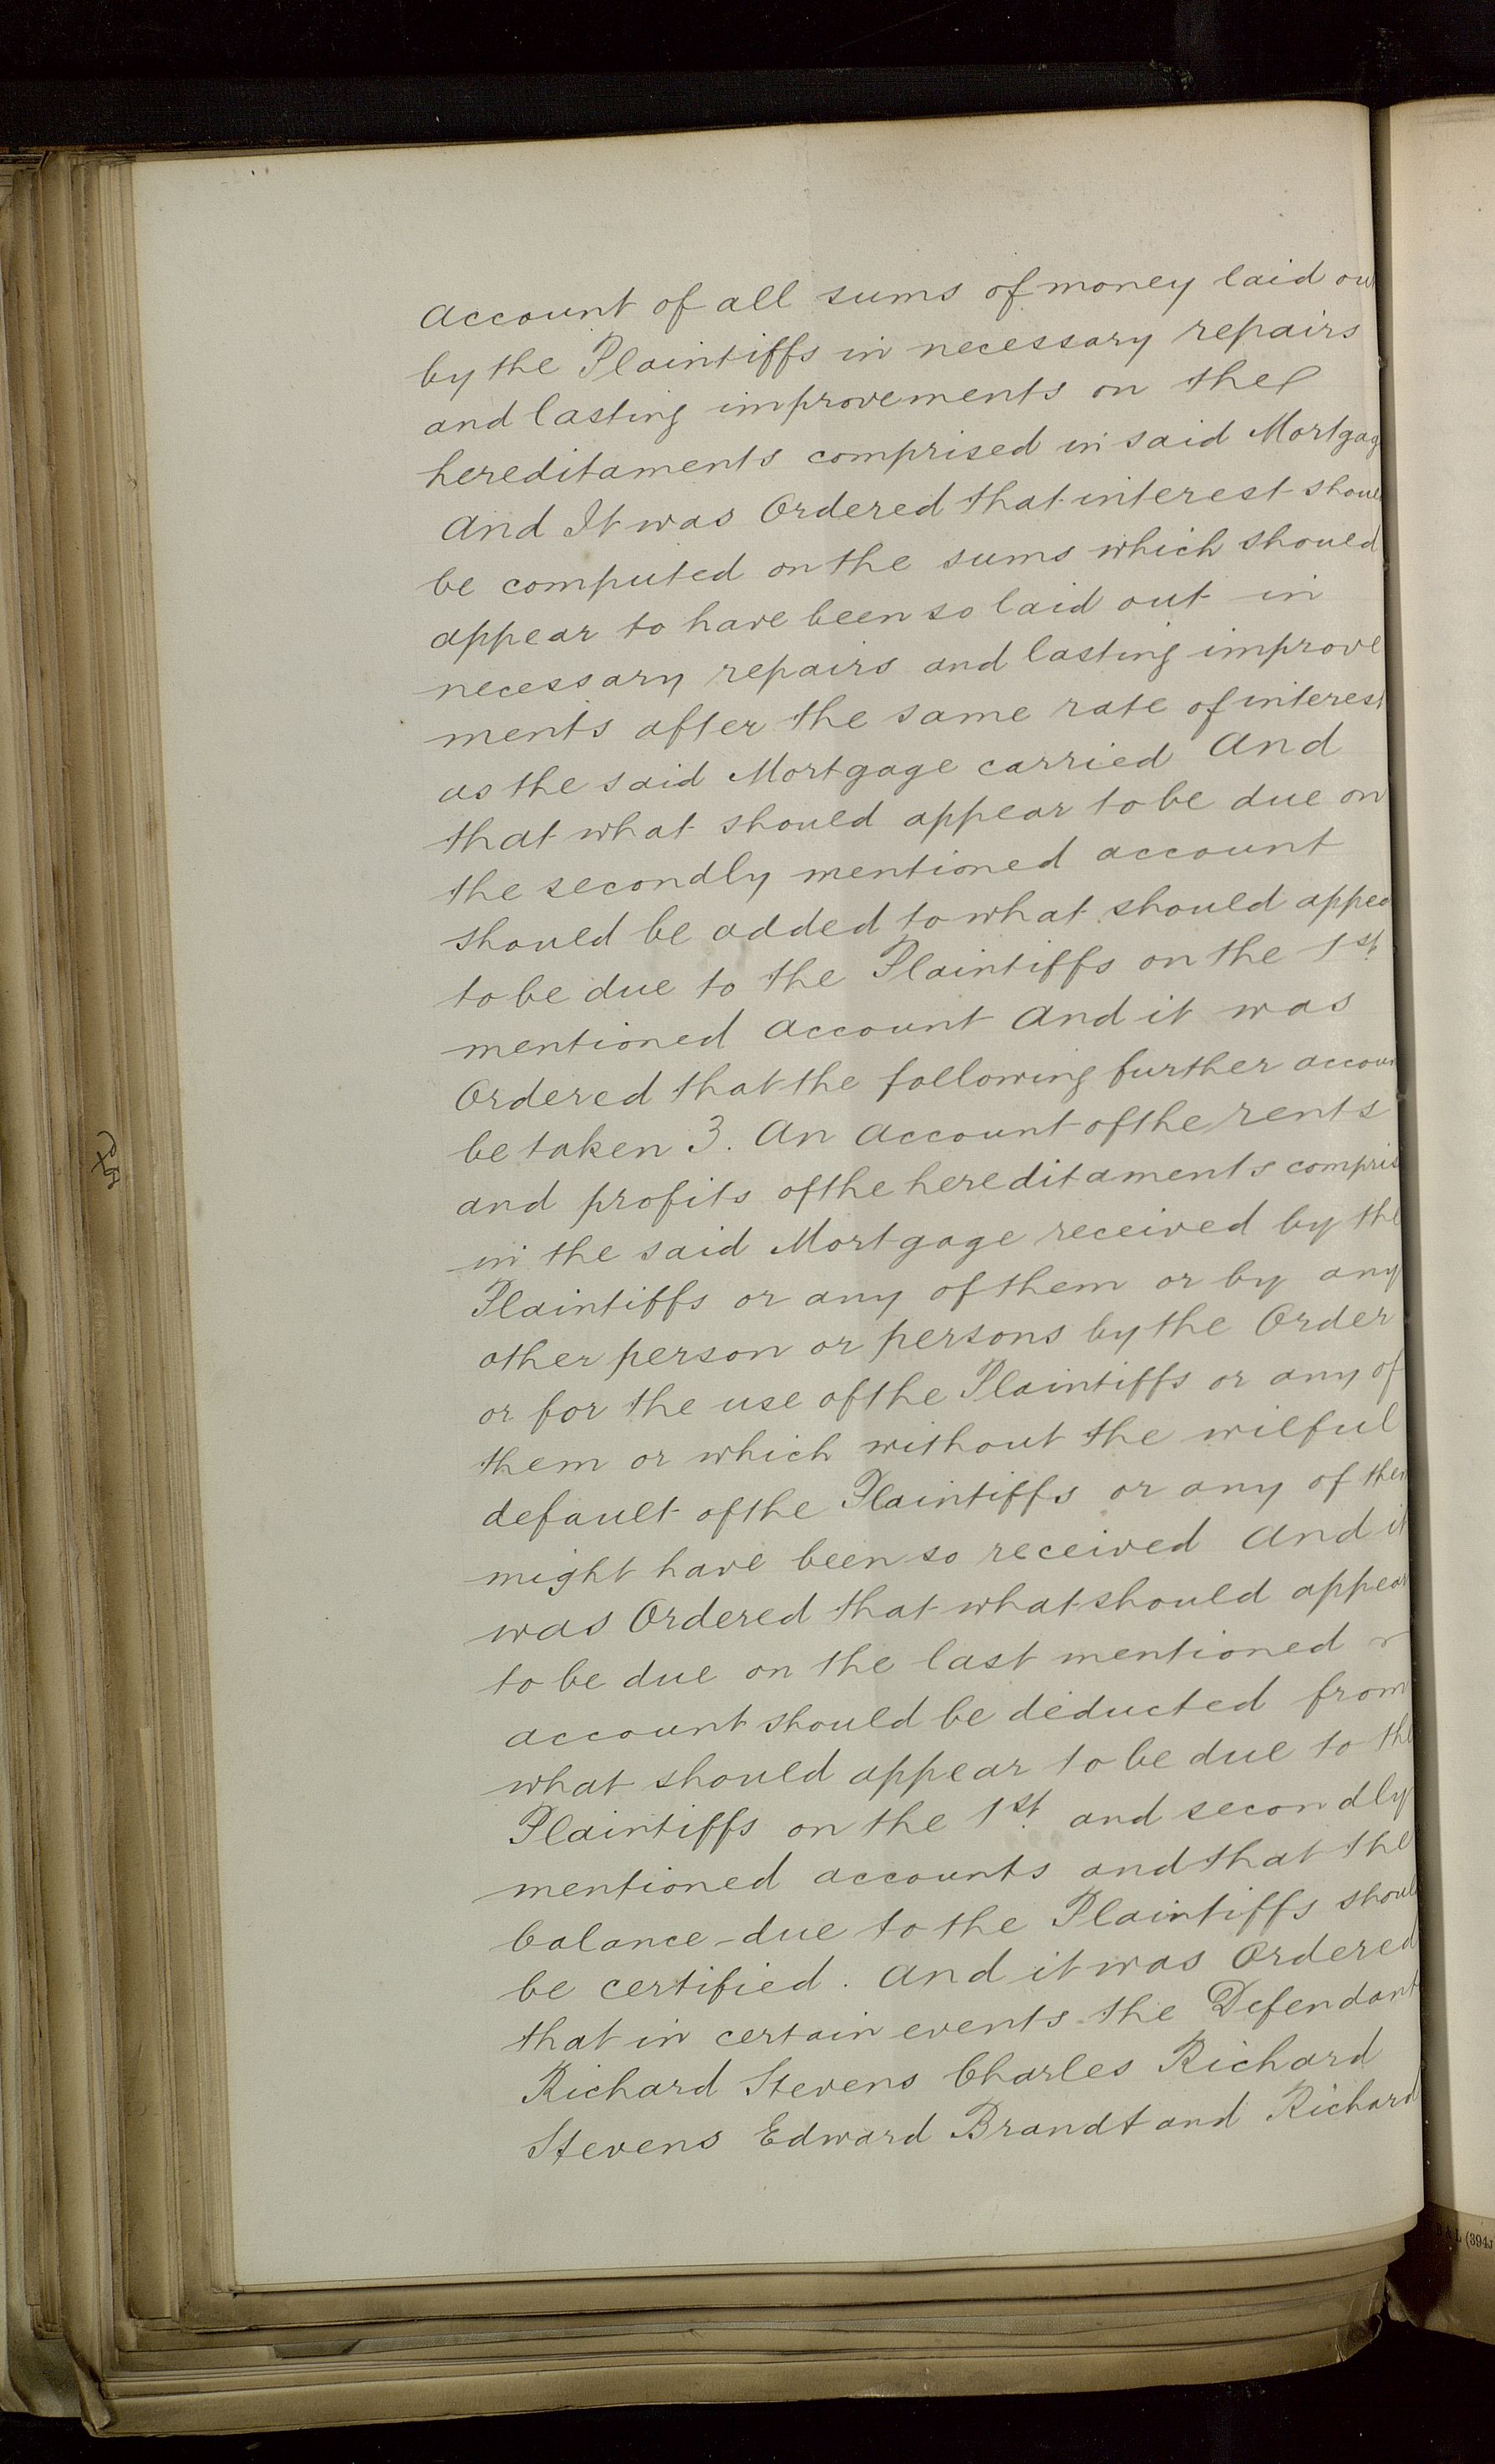 Account of all sums of money laid out
by the Plaintiffs in necessary repairs
and lasting improvements on the
hereditaments comprised in said Mortgag
And It was Ordered that interest shoul
be computed on the sums which should
appear to have been so laid out in
necessary repairs and lasting improve
ments after the same rate of interest
as the said Mortgage carried And
that what should appear to be due on
the secondly mentioned account
should be added to what should appea
to be due to the Plaintiffs on the 1st
mentioned account And it was
Ordered that the following further accoun
be taken 3. An Account of the rents
and profits of the hereditaments compris
in the said Mortgage received by the
Plaintiffs or any of them or by any
other person or persons by the Order
or for the use of the Plaintiffs or any of
them or which without the wilful
default of the Plaintiffs or any of them
might have been so received And it
was Ordered that what should appear
to be due on the last mentioned
account should be deducted from
what should appear to be due to the
Plaintiffs on the 1st and secondly
mentioned accounts and that the
balance due to the Plaintiffs shoul
be certified. And it was Ordered
that in certain events the Defendant
Richard Stevens Charles Richard
Stevens Edward Brandt and Richard
L (394